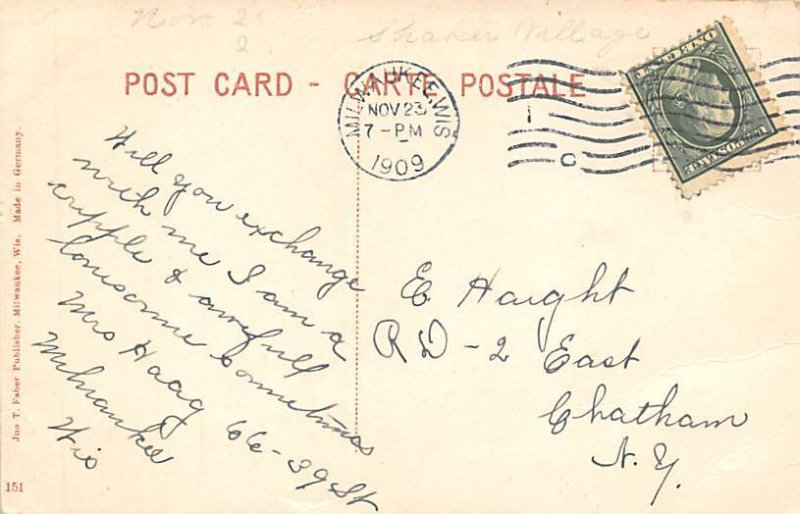 Nov. 2
2
Shaker Village
POST CARD - CARTE POSTALE
MILWAUKEE, WIS.
NOV 23
7 - PM
1909
1
C
Will you exchange
with me I am a
cripple & awfull
lonesome sometimes
Mrs Haag 66 - 39 St
Milwaukee
Wis
E Haight
RD - 2 East
Chatham
N.Y.
Jno T. Faber Publisher, Milwaukee, Wis. Made in Germany.
151